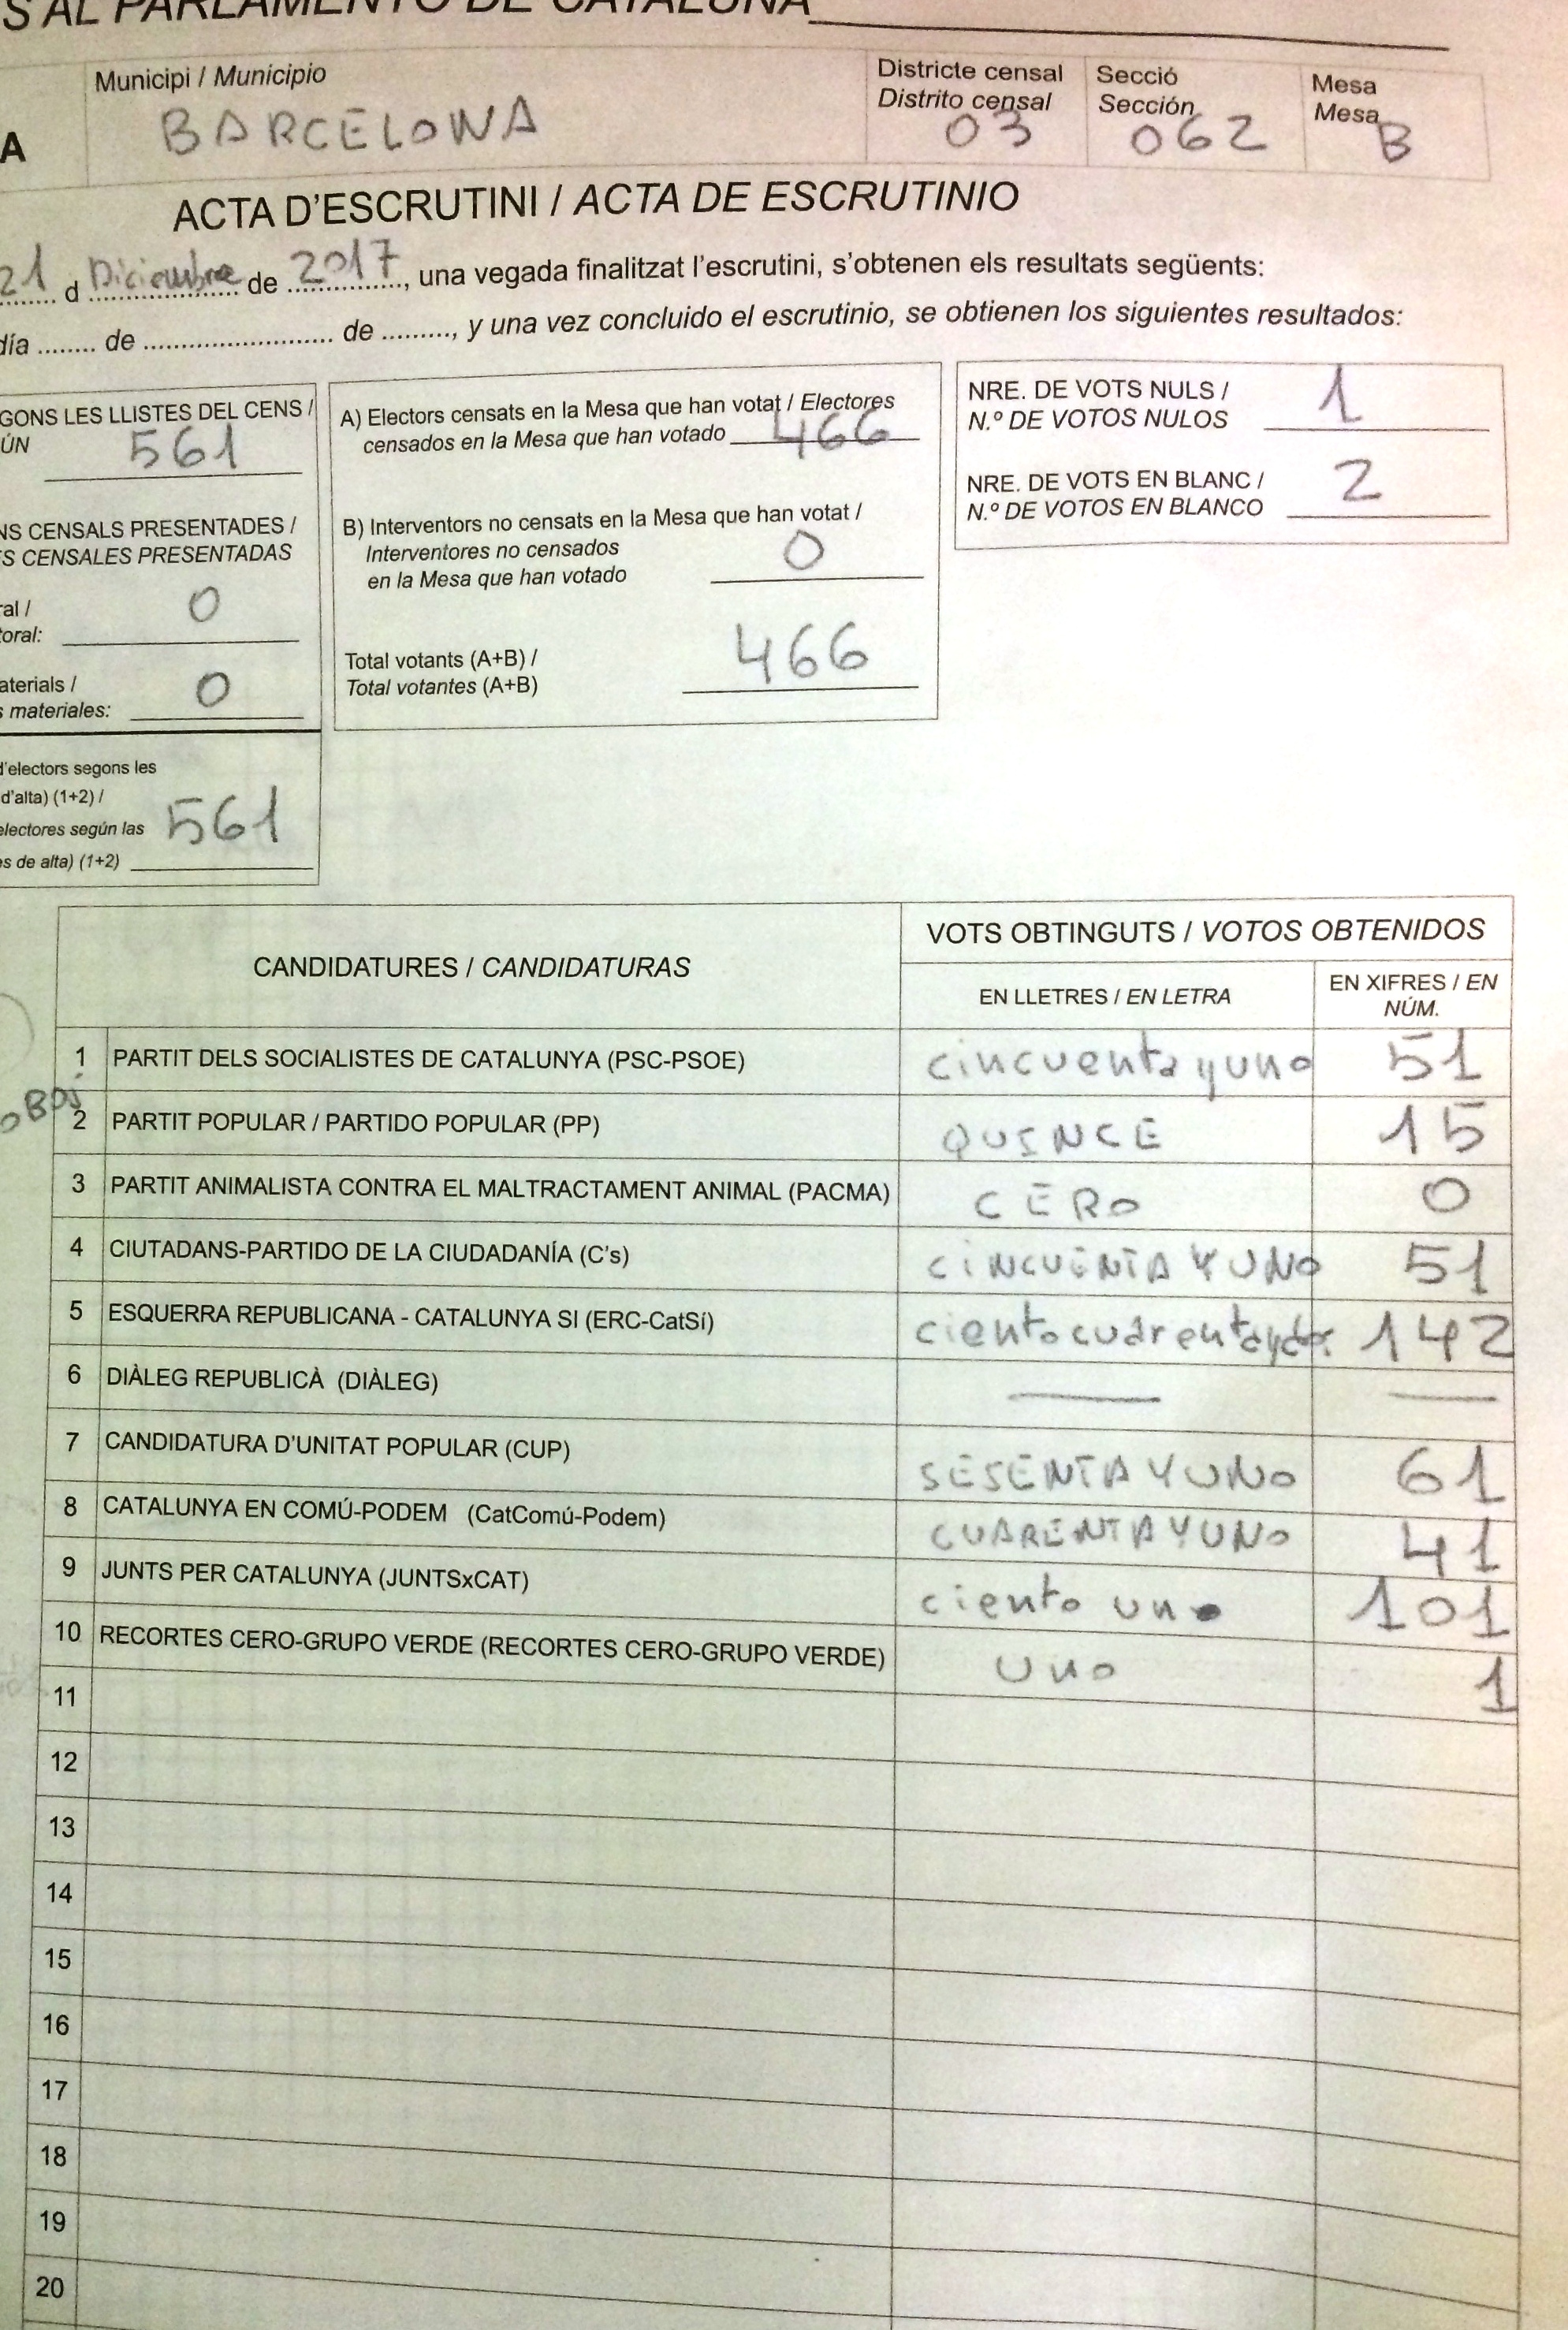 S AL PARLAMENTO DE CATALUÑA
Municipi / Municipio
BARCELONA
Districte censal
Distrito censal
03
Secció
Sección
062
Mesa
Mesa
B
A
ACTA D'ESCRUTINI / ACTA DE ESCRUTINIO
21 d Diciembre de 2017, una vegada finalitzat l'escrutini, s'obtenen els resultats següents:
día ........ de ........................... de ........., y una vez concluido el escrutinio, se obtienen los siguientes resultados:
GONS LES LLISTES DEL CENS /
ÚN 561
NS CENSALS PRESENTADES /
S CENSALES PRESENTADAS
ral /
toral: 0
aterials /
s materiales: 0
d'electors segons les
d'alta) (1+2) /
electores según las 561
es de alta) (1+2)
A) Electors censats en la Mesa que han votat / Electores
censados en la Mesa que han votado 466
B) Interventors no censats en la Mesa que han votat /
Interventores no censados
en la Mesa que han votado 0
Total votants (A+B) /
Total votantes (A+B) 466
NRE. DE VOTS NULS /
N.º DE VOTOS NULOS 1
NRE. DE VOTS EN BLANC /
N.º DE VOTOS EN BLANCO 2
CANDIDATURES / CANDIDATURAS
VOTS OBTINGUTS / VOTOS OBTENIDOS
EN LLETRES / EN LETRA
EN XIFRES / EN
NÚM.
1 PARTIT DELS SOCIALISTES DE CATALUNYA (PSC-PSOE) cincuenta y uno 51
2 PARTIT POPULAR / PARTIDO POPULAR (PP) QUINCE 15
3 PARTIT ANIMALISTA CONTRA EL MALTRACTAMENT ANIMAL (PACMA) CERO 0
4 CIUTADANS-PARTIDO DE LA CIUDADANÍA (C's) CINCUENTA Y UNO 51
5 ESQUERRA REPUBLICANA - CATALUNYA SI (ERC-CatSí) ciento cuarenta y dos 142
6 DIÀLEG REPUBLICÀ (DIÀLEG) — —
7 CANDIDATURA D'UNITAT POPULAR (CUP) SESENTA Y UNO 61
8 CATALUNYA EN COMÚ-PODEM (CatComú-Podem) CUARENTA Y UNO 41
9 JUNTS PER CATALUNYA (JUNTSxCAT) ciento uno 101
10 RECORTES CERO-GRUPO VERDE (RECORTES CERO-GRUPO VERDE) uno 1
11
12
13
14
15
16
17
18
19
20